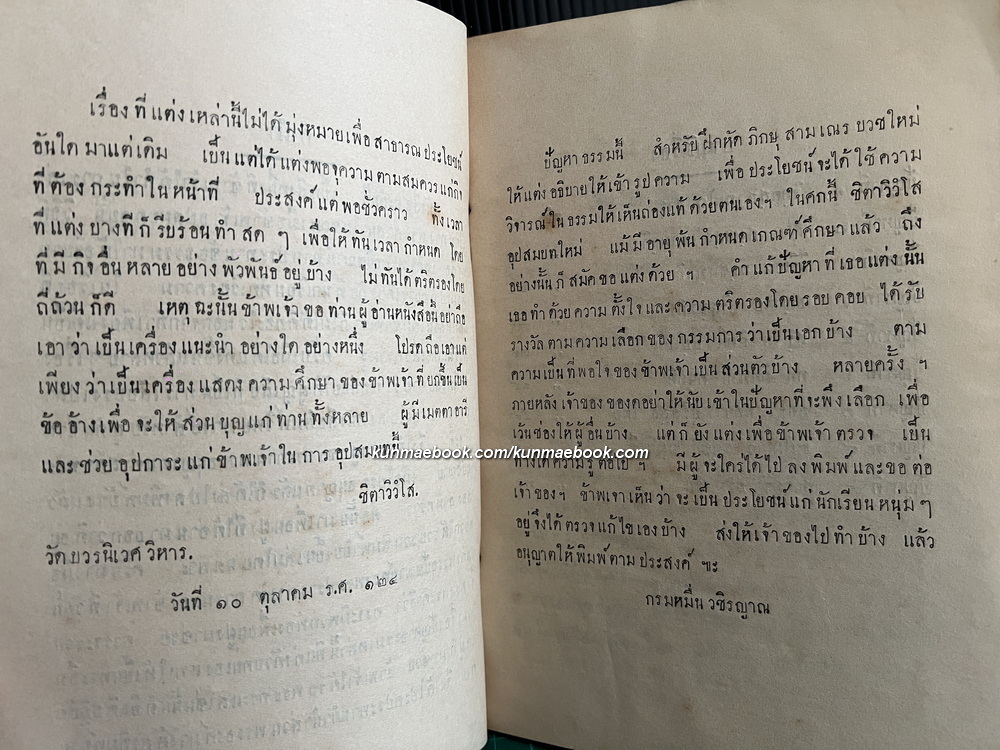 เรื่อง ที่ แต่ง เหล่านี้ไม่ได้ มุ่งหมาย เพื่อ สาธารณ ประโยชน์
อันใด มาแต่เดิม เป็น แต่ได้ แต่งพอจุความ ตามสมควร แก่กิจ
ที่ ต้อง กระทำใน หน้าที่ ประสงค์ แต่ พอชั่วคราว ทั้ง เวลา
ที่ แต่ง บางที ก็ รีบร้อน ทำ สด ๆ เพื่อให้ ทัน เวลา กำหนด โดย
ที่ มี กิจ อื่น หลาย อย่าง พัวพันธ์ อยู่ บ้าง ไม่ ทันได้ ตริตรองโดย
ถี่ถ้วน ก็ดี เหตุ ฉะนั้น ข้าพเจ้า ขอ ท่าน ผู้ อ่านหนังสือนี้ อย่าถือ
เอา ว่า เป็น เครื่อง แนะนำ อย่างใด อย่างหนึ่ง โปรด ถือ เอาแต่
เพียง ว่าเป็น เครื่อง แสดง ความ ศึกษา ของ ข้าพเจ้า ที่ ยกขึ้น เป็น
ข้อ อ้าง เพื่อ จะให้ ส่วน บุญ แก่ ท่าน ทั้งหลาย ผู้ มี เมตตา อารี
และ ช่วย อุปการะ แก่ ข้าพเจ้า ใน การ อุปสมบทนี้
ชิตาวิวิโส.
วัด บวรนิเวศ วิหาร.
วันที่ ๑๐ ตุลาคม ร.ศ. ๑๒๔
ปัญหา ธรรมนี้ สำหรับ ฝึกหัด ภิกษุ สาม เณร บวชใหม่
ให้ แต่ง อธิบาย ให้ เข้า รูป ความ เพื่อ ประโยชน์ จะได้ ใช้ ความ
วิจารณ์ ใน ธรรม ให้ เห็น ถ่องแท้ ด้วย ตนเอง ฯ ในศกนี้ ชิตาวิวิโส
อุปสมบทใหม่ แม้ มี อายุ พ้น กำหนด เกณฑ์ ศึกษา แล้ว ถึง
อย่างนั้น ก็ สมัค ขอ แต่ง ด้วย ฯ คำ แก้ ปัญหา ที่ เธอ แต่ง นั้น
เธอ ทำ ด้วย ความ ตั้งใจ และ ความ ตริตรองโดย รอบ คอบ ได้ รับ
รางวัล ตาม ความ เลือก ของ กรรมการ ว่าเป็น เอก บ้าง ตาม
ความเป็น ที่ พอใจ ของ ข้าพเจ้า เป็น ส่วนตัว บ้าง หลายครั้ง ฯ
ภายหลัง เจ้าของ ของดอย่า ให้ นับ เข้าใน ปัญหา ที่จะพึง เลือก เพื่อ
เว้นช่องให้ ผู้ อื่น บ้าง แต่ ก็ ยัง แต่ง เพื่อ ข้าพเจ้า ตรวจ เป็น
ทางได้ ความรู้ ต่อไป ฯ มี ผู้ จะใคร่ ได้ ไป ลง พิมพ์ และ ขอ ต่อ
เจ้า ของ ฯ ข้าพเจ้า เห็น ว่า จะ เป็น ประโยชน์ แก่ นักเรียน หนุ่ม ๆ
อยู่ จึงได้ ตรวจ แก้ไข เอง บ้าง ส่งให้ เจ้า ของ ไป ทำ บ้าง แล้ว
อนุญาต ให้ พิมพ์ ตาม ประสงค์ ๚ะ
กรมหมื่น วชิรญาณ
kunmaebook.com/kunmaebook.com